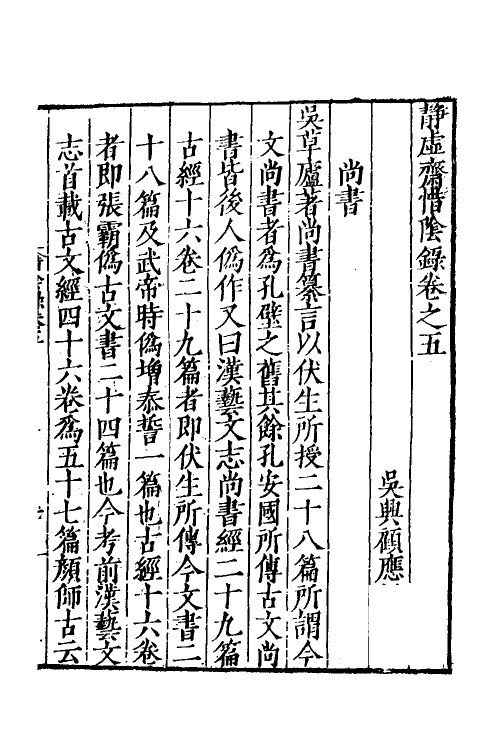 靜虛齋惜陰錄卷之五
吳興顧應
尚書
吳草廬著尚書纂言以伏生所授二十八篇所謂今
文尚書者爲孔壁之舊其餘孔安國所傳古文尚
書皆後人僞作又曰漢藝文志尚書經二十九篇
古經十六卷二十九篇者即伏生所傳今文書二
十八篇及武帝時僞增泰誓一篇也古經十六卷
者即張霸僞古文書二十四篇也今考前漢藝文
志首載古文經四十六卷爲五十七篇顏師古云